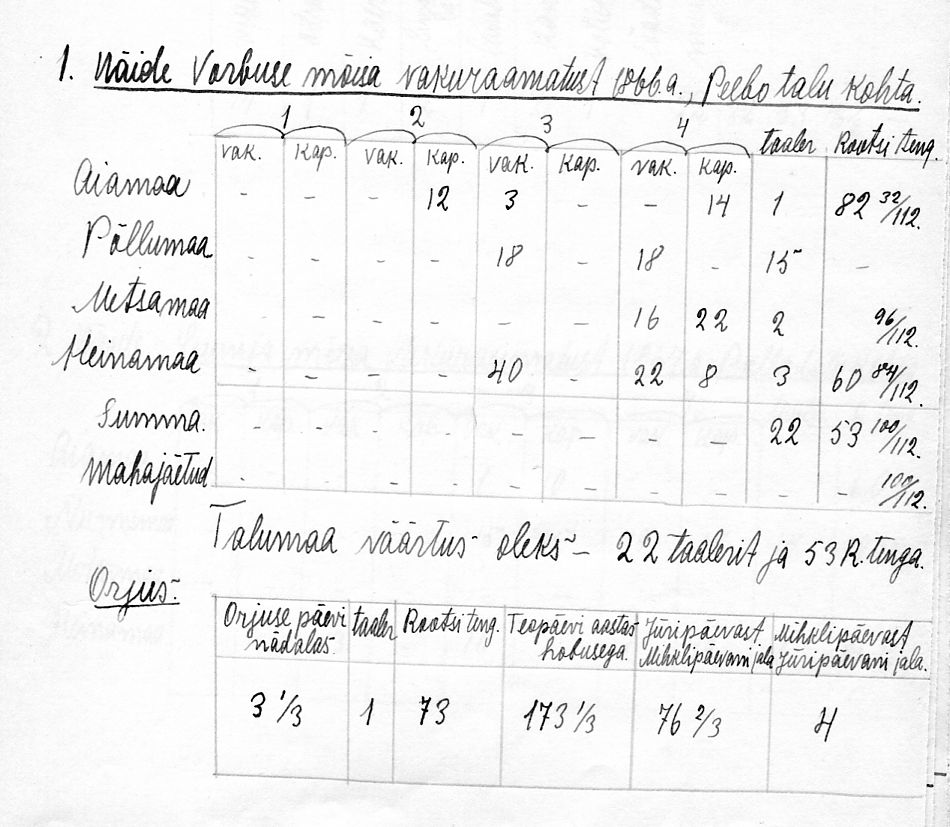 1. Näide Vorbuse mõisa vakuraamatust 1866.a., Peebo talu kohta.
1 2 3 4
vak. kap. vak. kap. vak. kap. vak. kap. taaler Rootsi teng.
Aiamaa - - - 12 3 - - 14 1 82 32/112.
Põllumaa - - - - 18 - 18 - 15 -
Metsamaa - - - - - - 16 22 2 96/112.
Heinamaa - - - - 40 - 22 8 3 60 84/112.
Summa. - - - - - - - - 22 53 100/112.
Mahajäetud - - - - - - - - - - 100/112.
Talumaa väärtus oleks - 22 taalerit ja 53 R. tenga.
Orjus:
Orjuse päevi nädalas taaler Rootsi teng. Teopäevi aastas hobusega. Jüripäevast Mihklipäevani jala Mihklipäevast Jüripäevani jala.
3 1/3 1 73 173 1/3 76 2/3 4